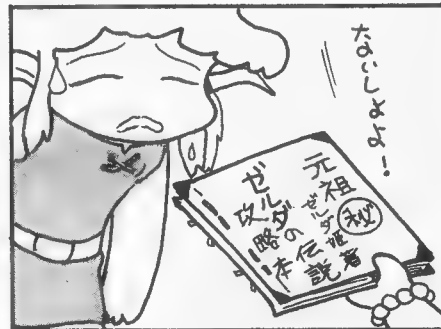 ないしょよ!
元祖㊙
ゼルダ姫著
ゼルダの伝説
攻略本